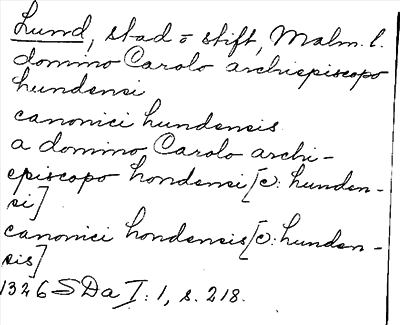 Lund, stad o stift, Malm. l.
domino Carolo archiepiscopo
Lundensi
canonici Lundensis
a domino Carolo archi-
episcopo Londensi [ɔ: Lunden-
si]
canonici Londensis [ɔ: Lunden-
sis]
1326 SDa I: 1, s. 218.